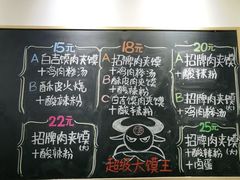 15元
A 白吉馍肉夹馍
+鸡肉粉汤
B 酥皮肉火烧
+酸辣粉
22元
招牌肉夹馍(大)
+酸辣粉
18元
A 招牌肉夹馍
+鸡肉粉汤
B 招牌肉夹馍
+酸辣粉
C 白吉馍肉夹馍
+酸辣粉
超级大馍王
20元
A 招牌肉夹馍
+酸辣粉
B 招牌肉夹馍(大)
+鸡肉粉汤
25元
招牌肉夹馍(大)
+酸辣粉
+肉蛋